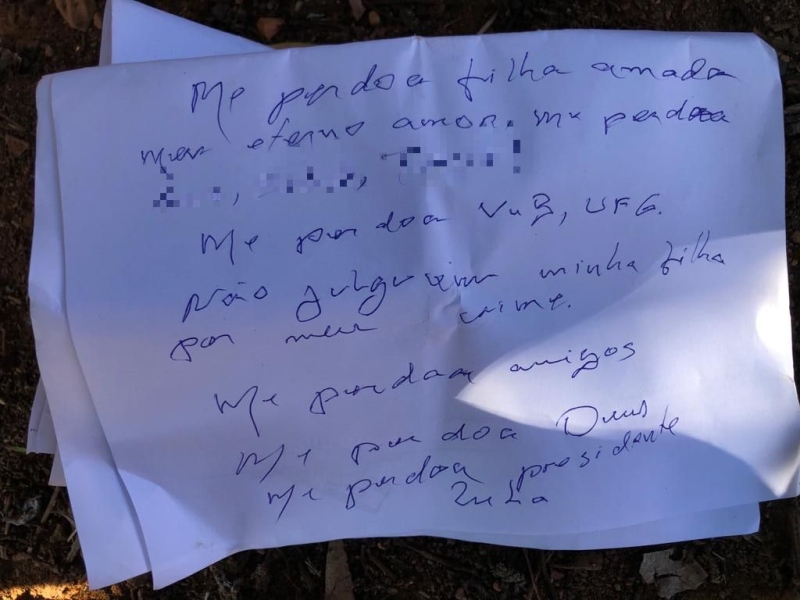 Me perdoa filha amada
meu eterno amor. me perdoa
Me perdoa VuB, UFG.
Não julguem minha filha
por meu crime.
Me perdoa amigos
Me perdoa Deus
me perdoa presidente
Lula